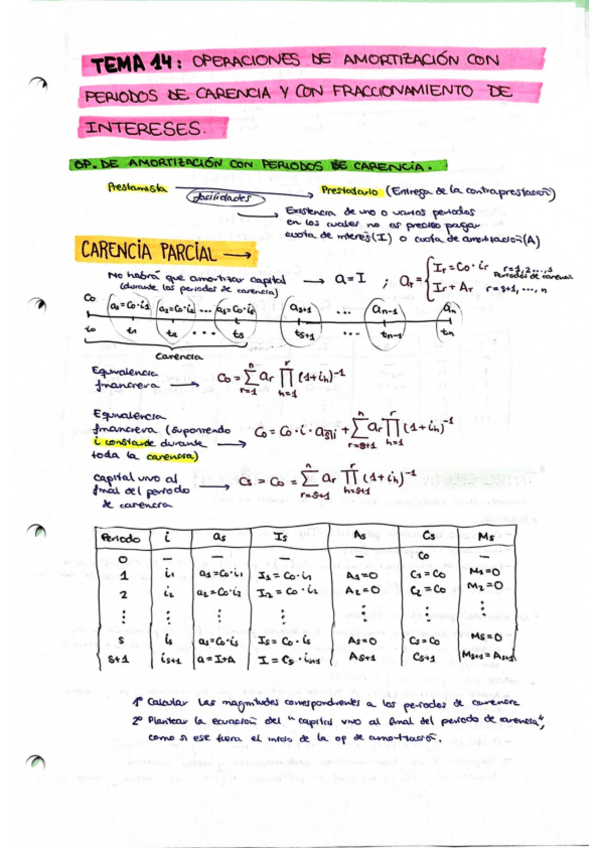 TEMA 14: OPERACIONES DE AMORTIZACIÓN CON
PERIODOS DE CARENCIA Y CON FRACCIONAMIENTO DE
INTERESES.
OP. DE AMORTIZACIÓN CON PERIODOS DE CARENCIA.
Prestamista → Prestatario (Entrega de la contraprestación)
facilidades
→ Existencia de uno o varios periodos
en los cuales no es preciso pagar
cuota de interés (I) o cuota de amortización (A)
CARENCIA PARCIAL →
No habrá que amortizar capital → a = I ; ar = { Ir = Co · ir r=1,2,...,s Periodos de carencia
(durante los periodos de carencia) Ir + Ar r = s+1, ..., n
Co a1=Co·i1 a2=Co·i2 ... as=Co·is as+1 ... an-1 an
to t1 t2 ... ts ts+1 ... tn-1 tn
Carencia
Equivalencia
financiera → Co = Σ(r=1, n) ar Π(h=1, r) (1+ih)^-1
Equivalencia
financiera (suponiendo
i constante durante → Co = Co · i · as̅|i + Σ(r=s+1, n) ar Π(h=1, r) (1+ih)^-1
toda la carencia)
Capital vivo al
final del periodo → Cs = Co = Σ(r=s+1, n) ar Π(h=s+1, r) (1+ih)^-1
de carencia
Periodo i as Is As Cs Ms
0 — — — — Co —
1 i1 a1=Co·i1 I1 = Co · i1 A1=0 C1 = Co M1=0
2 i2 a2=Co·i2 I2 = Co · i2 A2=0 C2 = Co M2=0
⋮ ⋮ ⋮ ⋮ ⋮ ⋮ ⋮
s is as=Co·is Is = Co · is As=0 Cs=Co Ms=0
s+1 is+1 a=I+A I = Cs · is+1 As+1 Cs+1 Ms+1 = As+1
1º Calcular las magnitudes correspondientes a los periodos de carencia
2º Plantear la ecuación del "capital vivo al final del periodo de carencia",
como si ese fuera el inicio de la op de amortización.